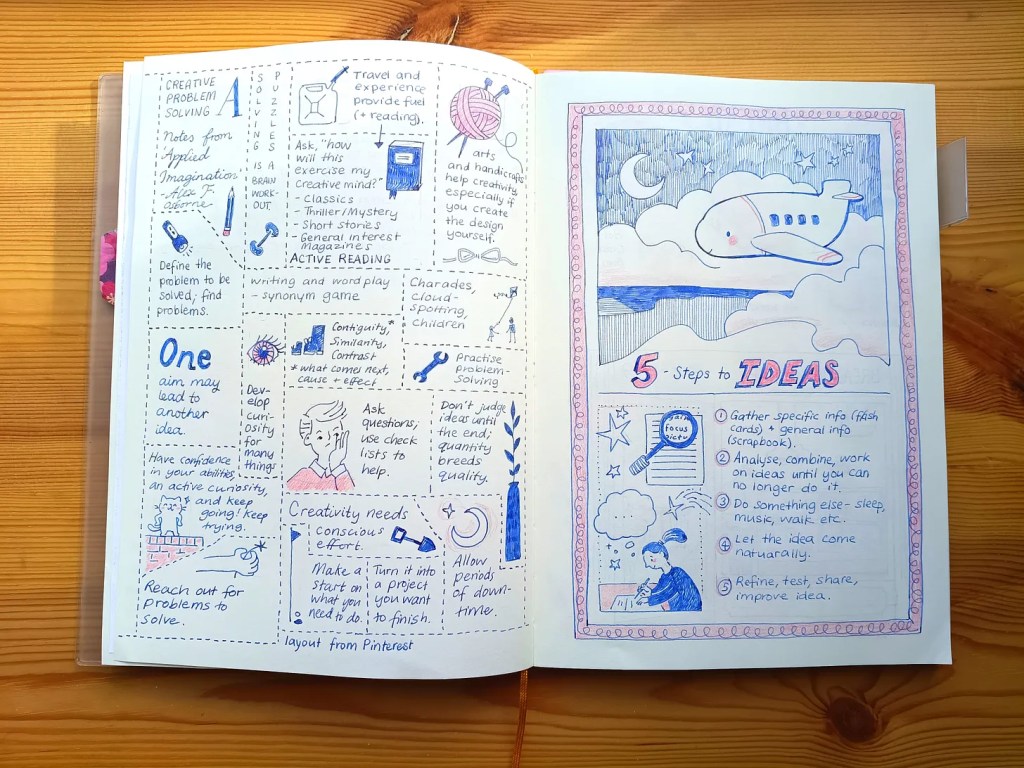 CREATIVE
PROBLEM
SOLVING
A
Notes from
'Applied
Imagination'
- Alex F.
Osborne
SOLVING
PUZZLES
IS A
BRAIN
WORK-
OUT.
Travel and
experience
provide fuel
(+ reading).
Ask, "how
will this
exercise my
creative mind?"
- Classics
- Thriller/Mystery
- Short stories
- General interest
magazines
ACTIVE READING
arts
and handicrafts
help creativity,
especially if
you create
the design
yourself.
Define the
problem to be
solved; find
problems.
writing and word play
- synonym game
Charades,
cloud-
spotting,
children
One
aim may
lead to
another
idea.
Dev-
elop
curi-
osity
for
many
things
Contiguity,*
Similarity,
Contrast
* what comes next,
cause + effect
Practise
problem-
solving
Ask
questions,
use check
lists to
help.
Don't judge
ideas until
the end;
quantity
breeds
quality.
Have confidence
in your abilities,
an active curiosity,
and keep
going! Keep
trying.
Reach out for
problems to
solve.
Creativity needs
conscious
effort.
Make a
start on
what you
need to do.
Turn it into
a project
you want
to finish.
Allow
periods
of down-
time.
layout from Pinterest
5 - Steps to IDEAS
focus
① Gather specific info (flash
cards) + general info
(scrapbook).
② Analyse, combine, work
on ideas until you can
no longer do it.
③ Do something else - sleep,
music, walk etc.
④ Let the idea come
naturarally.
⑤ Refine, test, share,
improve idea.